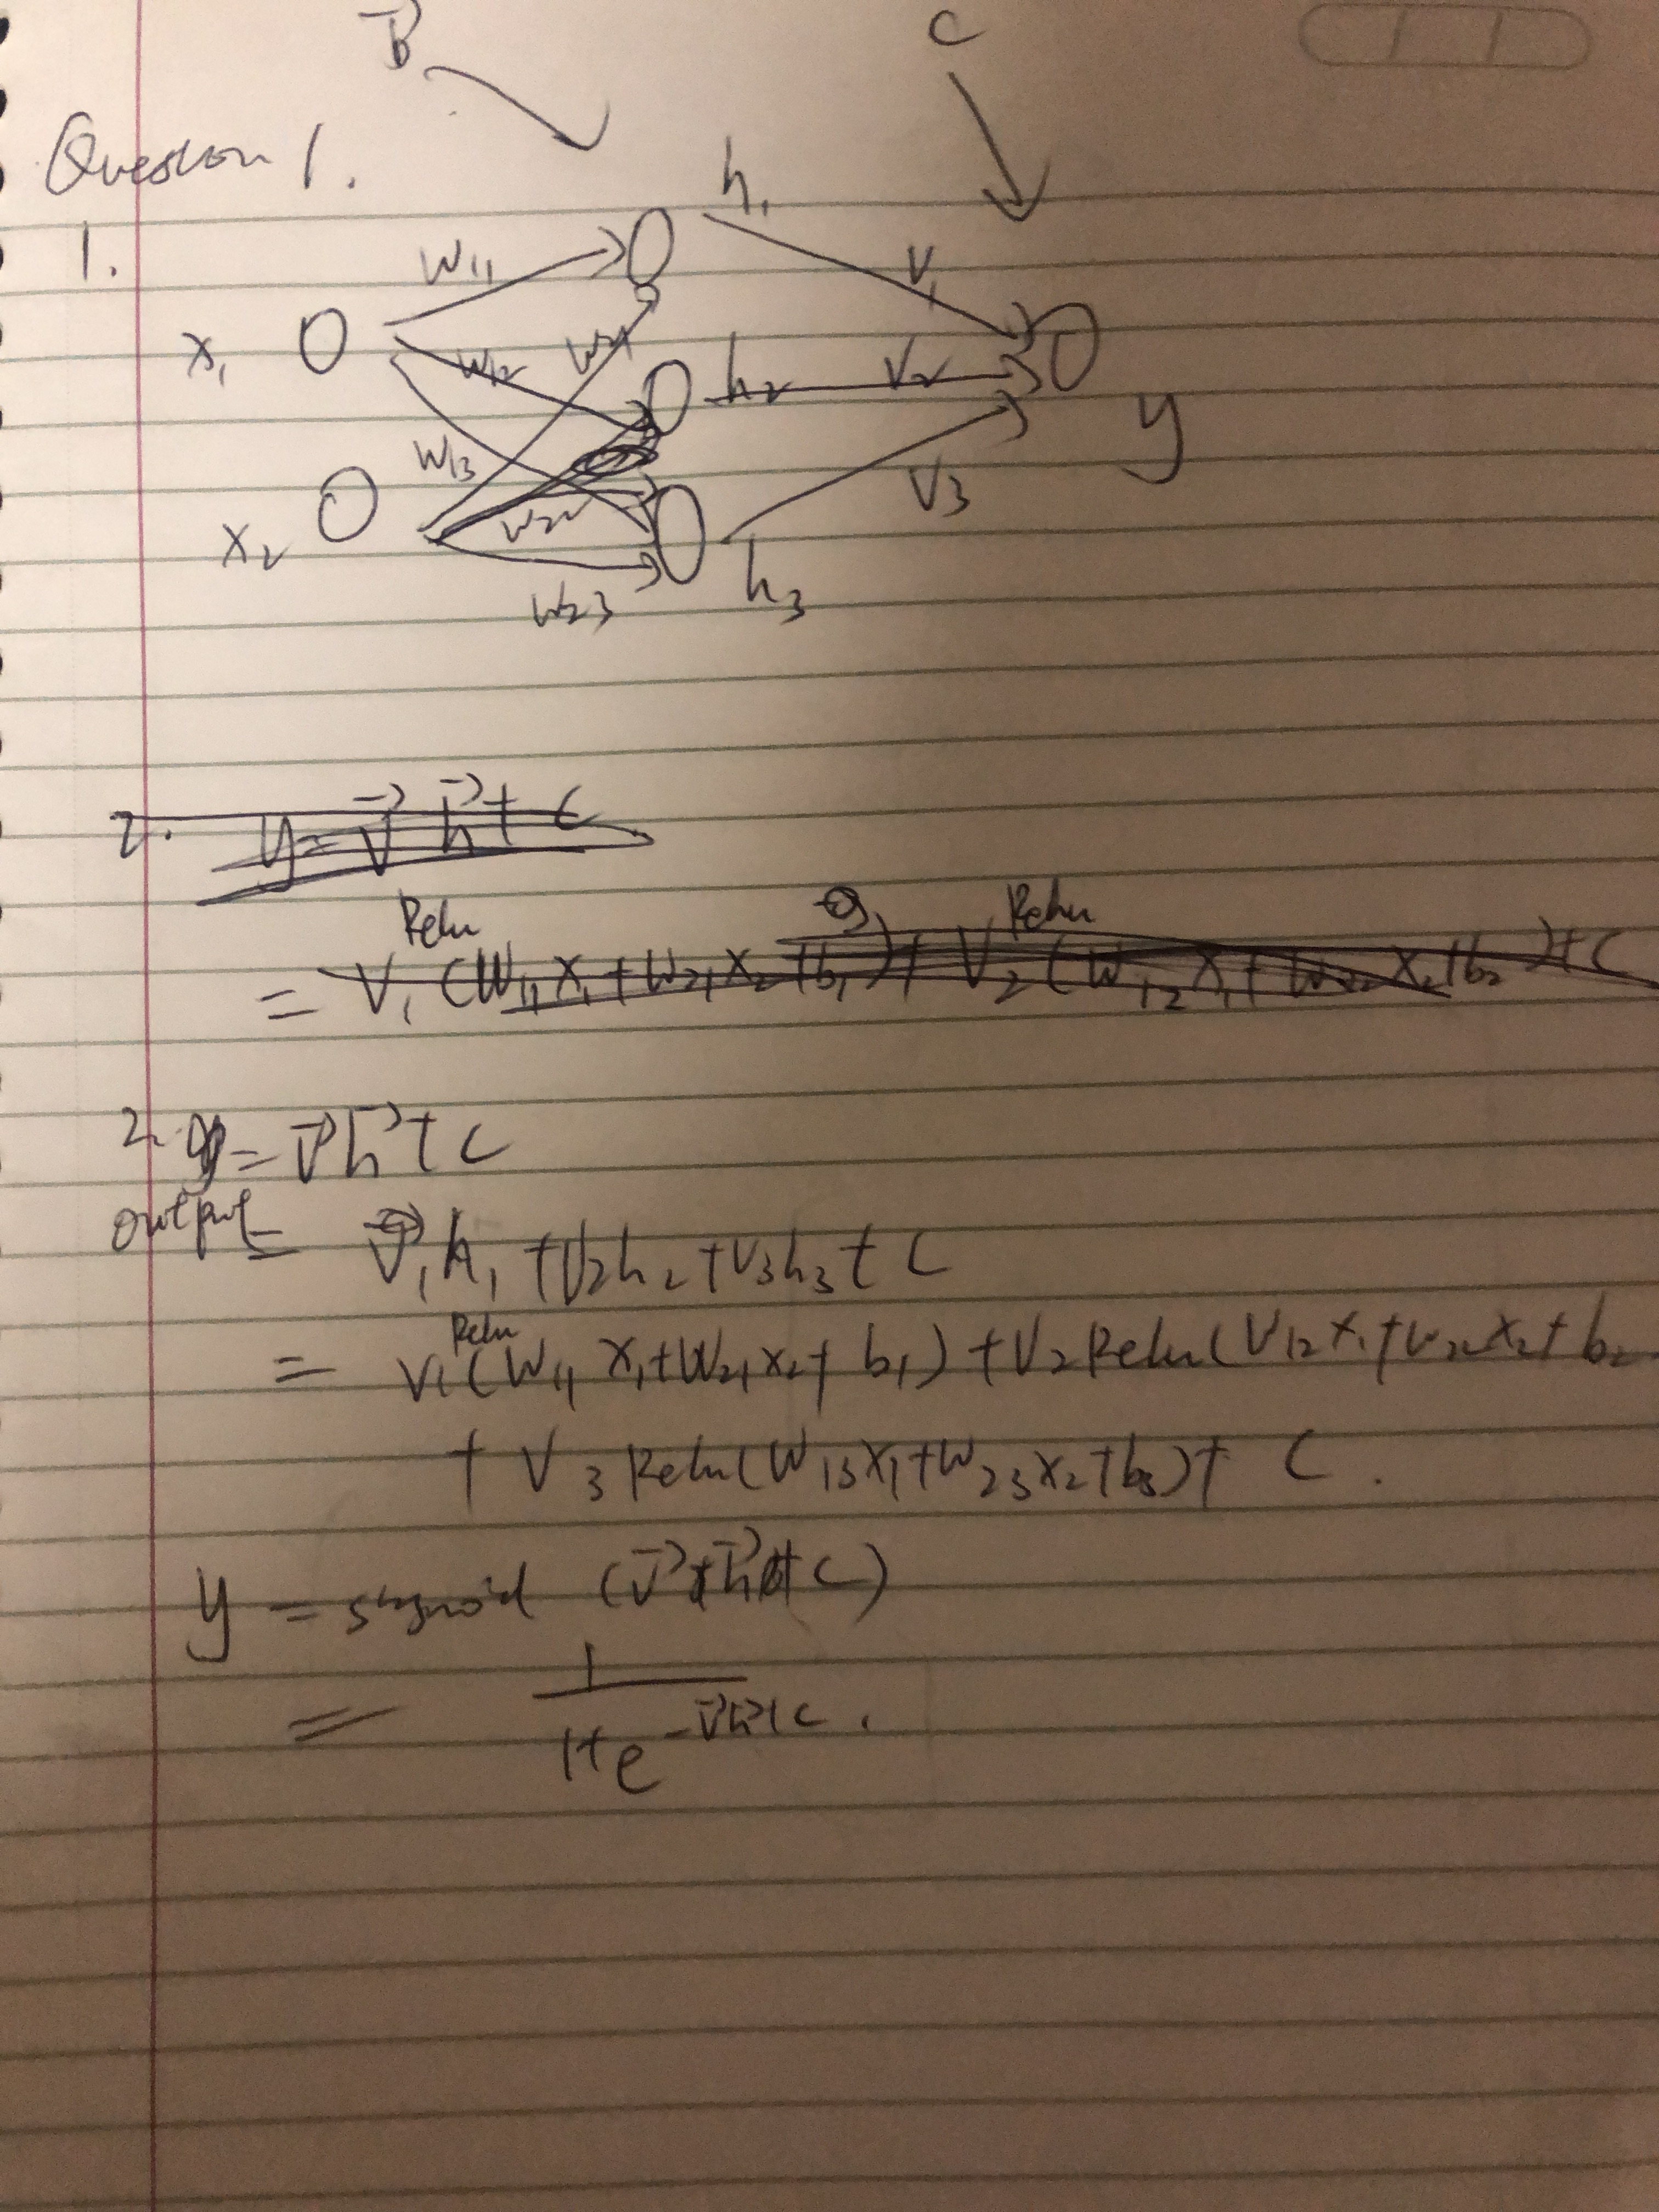 B⃗
C
Question 1.
1.
h₁
W₁₁
V₁
x₁
W₁₂
W₂₁
h₂
V₂
y
W₁₃
V₃
x₂
W₂₂
W₂₃
h₃
2. y = V⃗ h⃗ + C
Relu Relu
= V₁ (W₁₁x₁ + W₂₁x₂ + b₁) + V₂ (W₁₂x₁ + W₂₂x₂ + b₂) + C
2. y = V⃗h⃗ + C
output = V₁h₁ + V₂h₂ + V₃h₃ + C
Relu
= V₁(W₁₁ x₁ + W₂₁x₂ + b₁) + V₂ Relu(V₁₂x₁ + W₂₂x₂ + b₂
+ V₃ Relu(W₁₃x₁ + W₂₃x₂ + b₃) + C.
y = sigmoid (V⃗ h⃗ + C)
= 1
1+e^-V⃗h⃗+C.